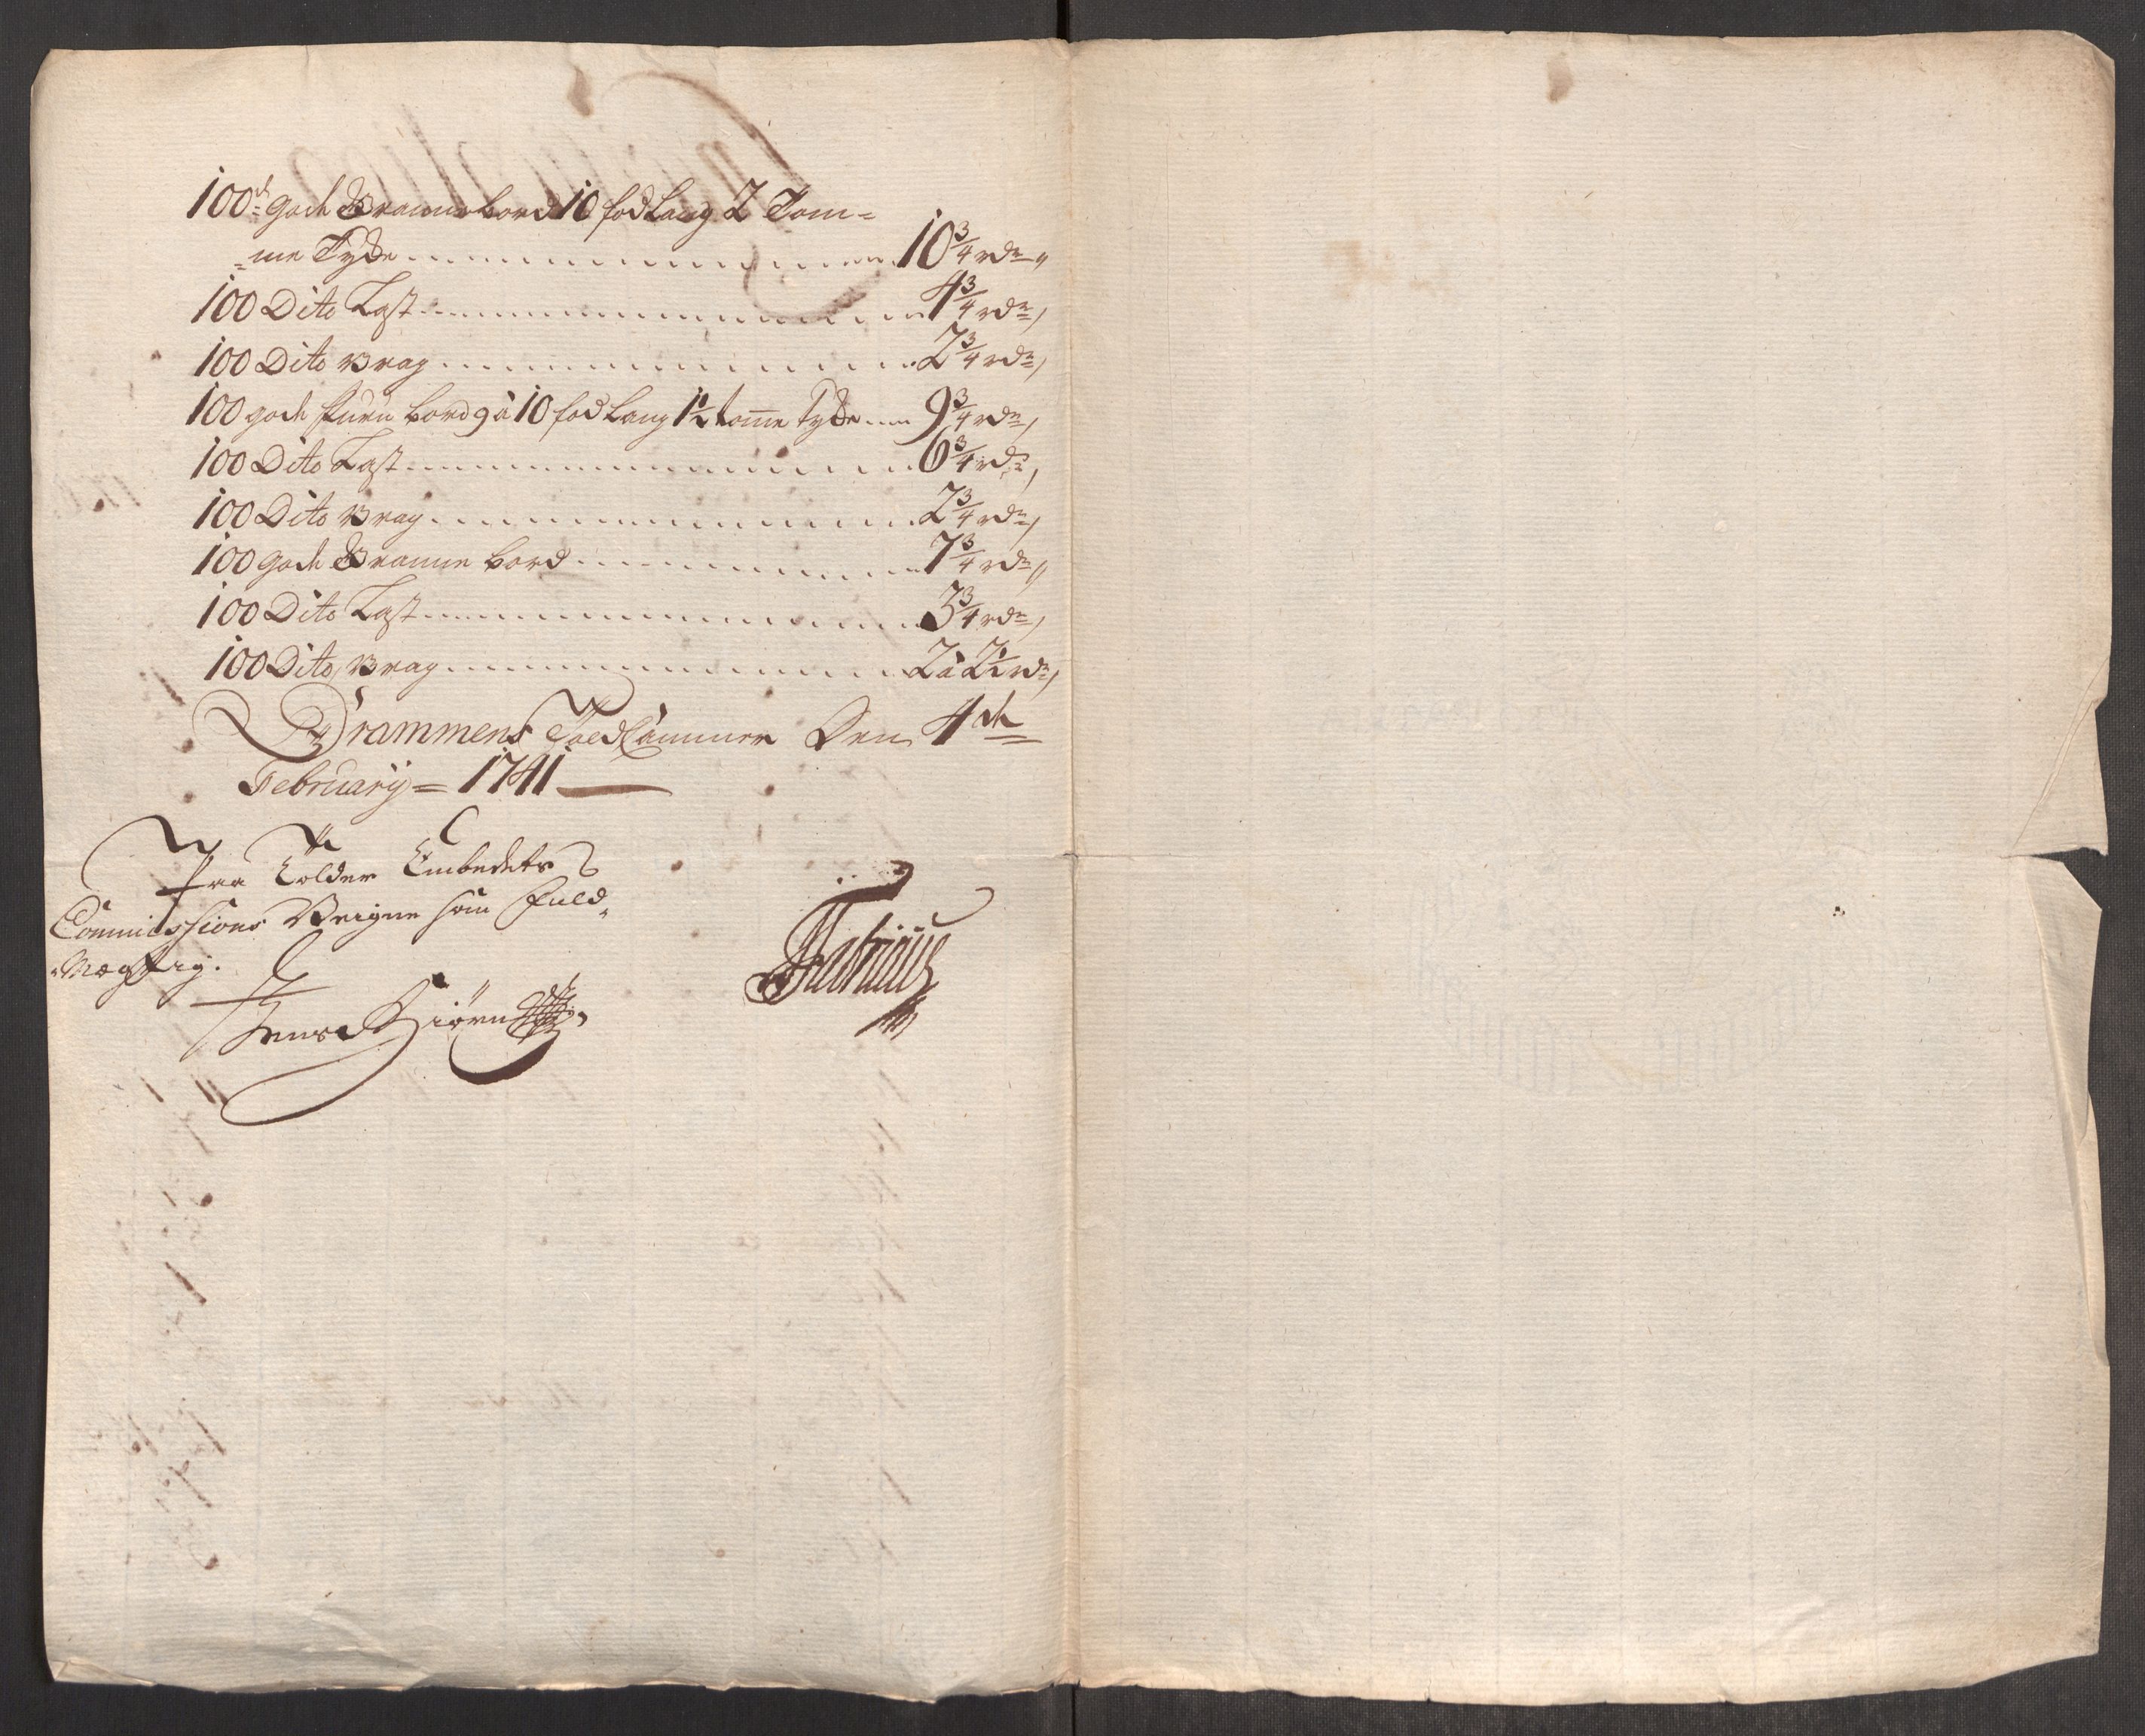 100de gode Granne bord 10 fod Lang 2 Tom=
=me Tyke 10 3/4 rdr
100 Dito Last 4 3/4 rdr
100 Dito Vrag 2 3/4 rdr
100 gode furu bord 9 à 10 fod Lang 1 1/2 tome Tyke 9 3/4 rdr
100 Dito Last 6 3/4 rdr
100 Dito Vrag 2 3/4 rdr
100 gode Granne bord 7 3/4 rdr
100 Dito Last 3 3/4 rdr
100 Dito Vrag 2 à 2 1/2 rdr
Drammens Told Cammer Den 4de
February = 1741
Paa Tolder Embedets
Commissions Veigne som Fuld-
Mægtig.
Jens Biørn